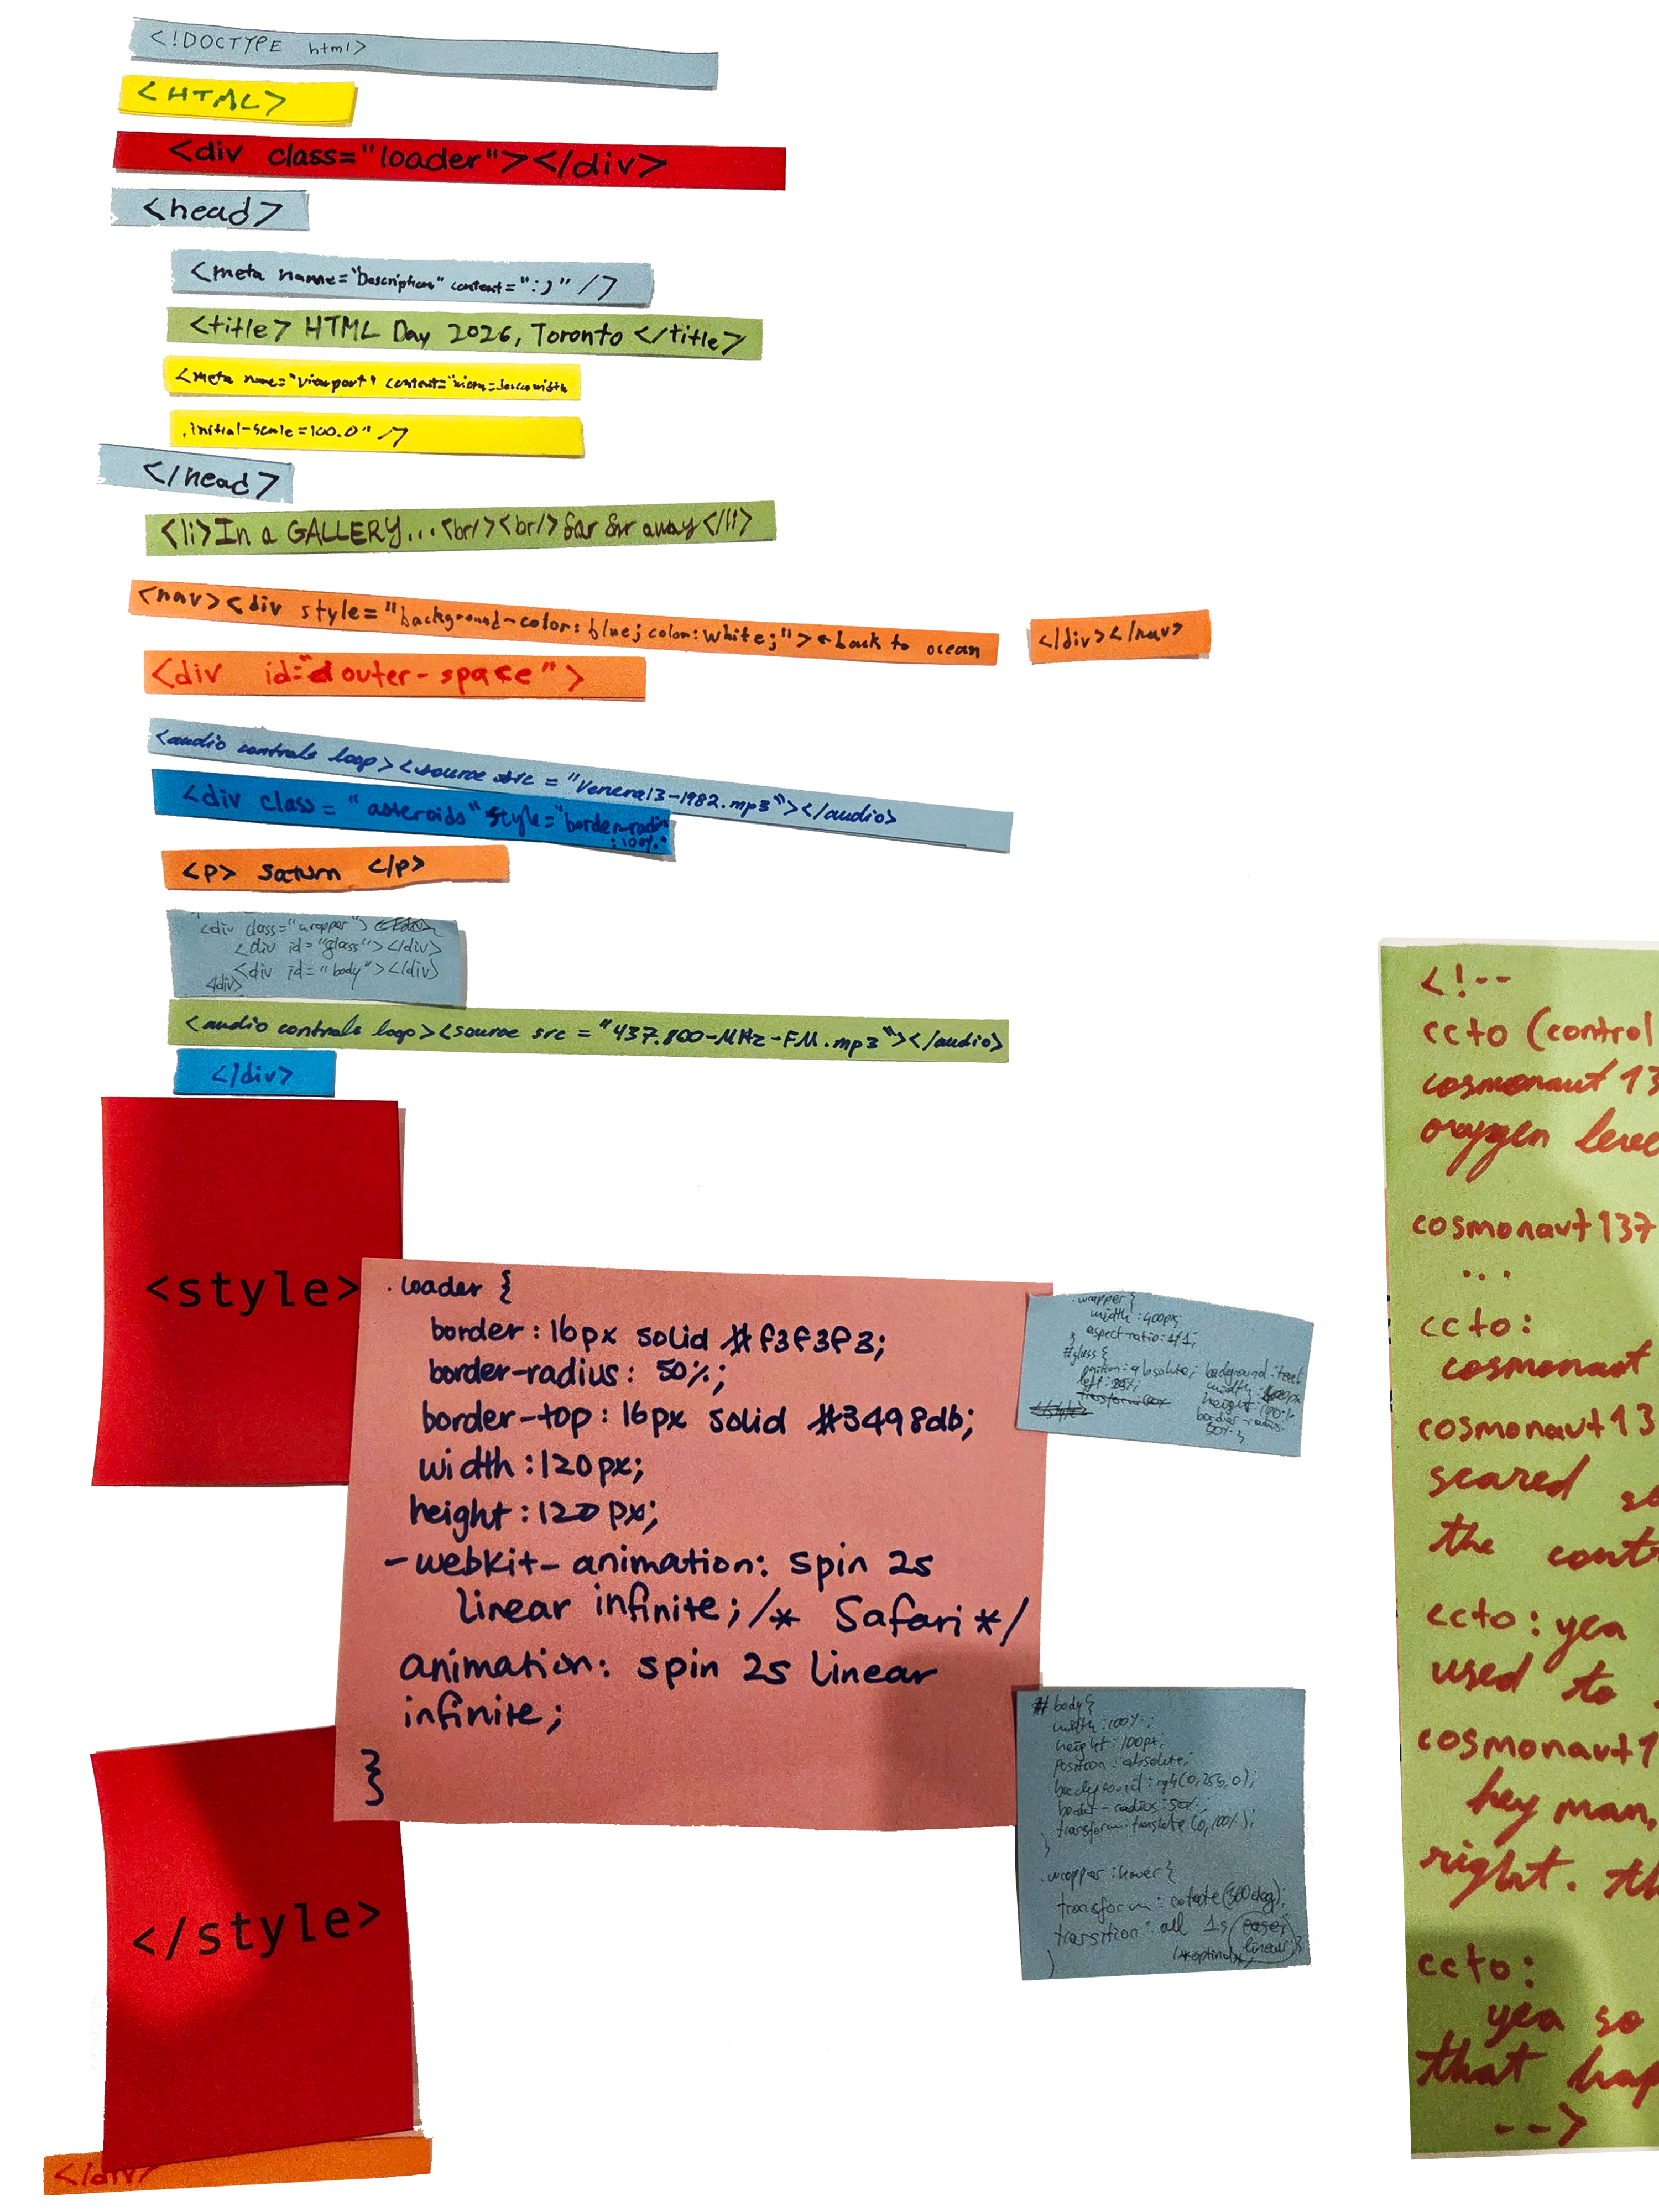 <!DOCTYPE html>
<HTML>
<div class="loader"></div>
<head>
<meta name="Description" content=":)" />
<title> HTML Day 2026, Toronto </title>
<meta name="viewport" content="width=device-width
, initial-scale=100.0" />
</head>
<li>In a GALLERY...<br/><br/>far far away</li>
<nav><div style="background-color: blue; color: white;">←back to ocean </div></nav>
<div id="outer-space">
<audio controls loop><source src = "Venera13-1982.mp3"></audio>
<div class = "asteroids" style="border-radius
:100%"
<p> Saturn </p>
<div class="wrapper">
<div id="glass"></div>
<div id="body"></div>
<audio controls loop><source src = "437.800-MHz-FM.mp3"></audio>
</div>
<style>
.loader {
border: 16px solid #f3f3f3;
border-radius: 50%;
border-top: 16px solid #3498db;
width: 120px;
height: 120px;
-webkit-animation: spin 2s
linear infinite; /* Safari */
animation: spin 2s linear
infinite;
}
.wrapper {
width: 400px;
aspect-ratio: 1/1;
}
#glass {
position: absolute;
left:
background:
width:
height: 100%
border-radius:
50% }
#body {
width: 100%;
height: 100px;
position: absolute;
background: rgb(0,255,0);
border-radius: 50%;
transform: translate(0,100%);
}
.wrapper:hover {
transform: rotate(360deg);
transition: all 1s ease;
linear;
}
</style>
</div>
<!--
ccto (control
cosmonaut 13
oxygen leve
cosmonaut137
...
ccto:
cosmonaut
cosmonaut13
scared so
the cont
ccto: yea
used to
cosmonaut1
hey man,
right. th
ccto:
yea so
that hap
-->